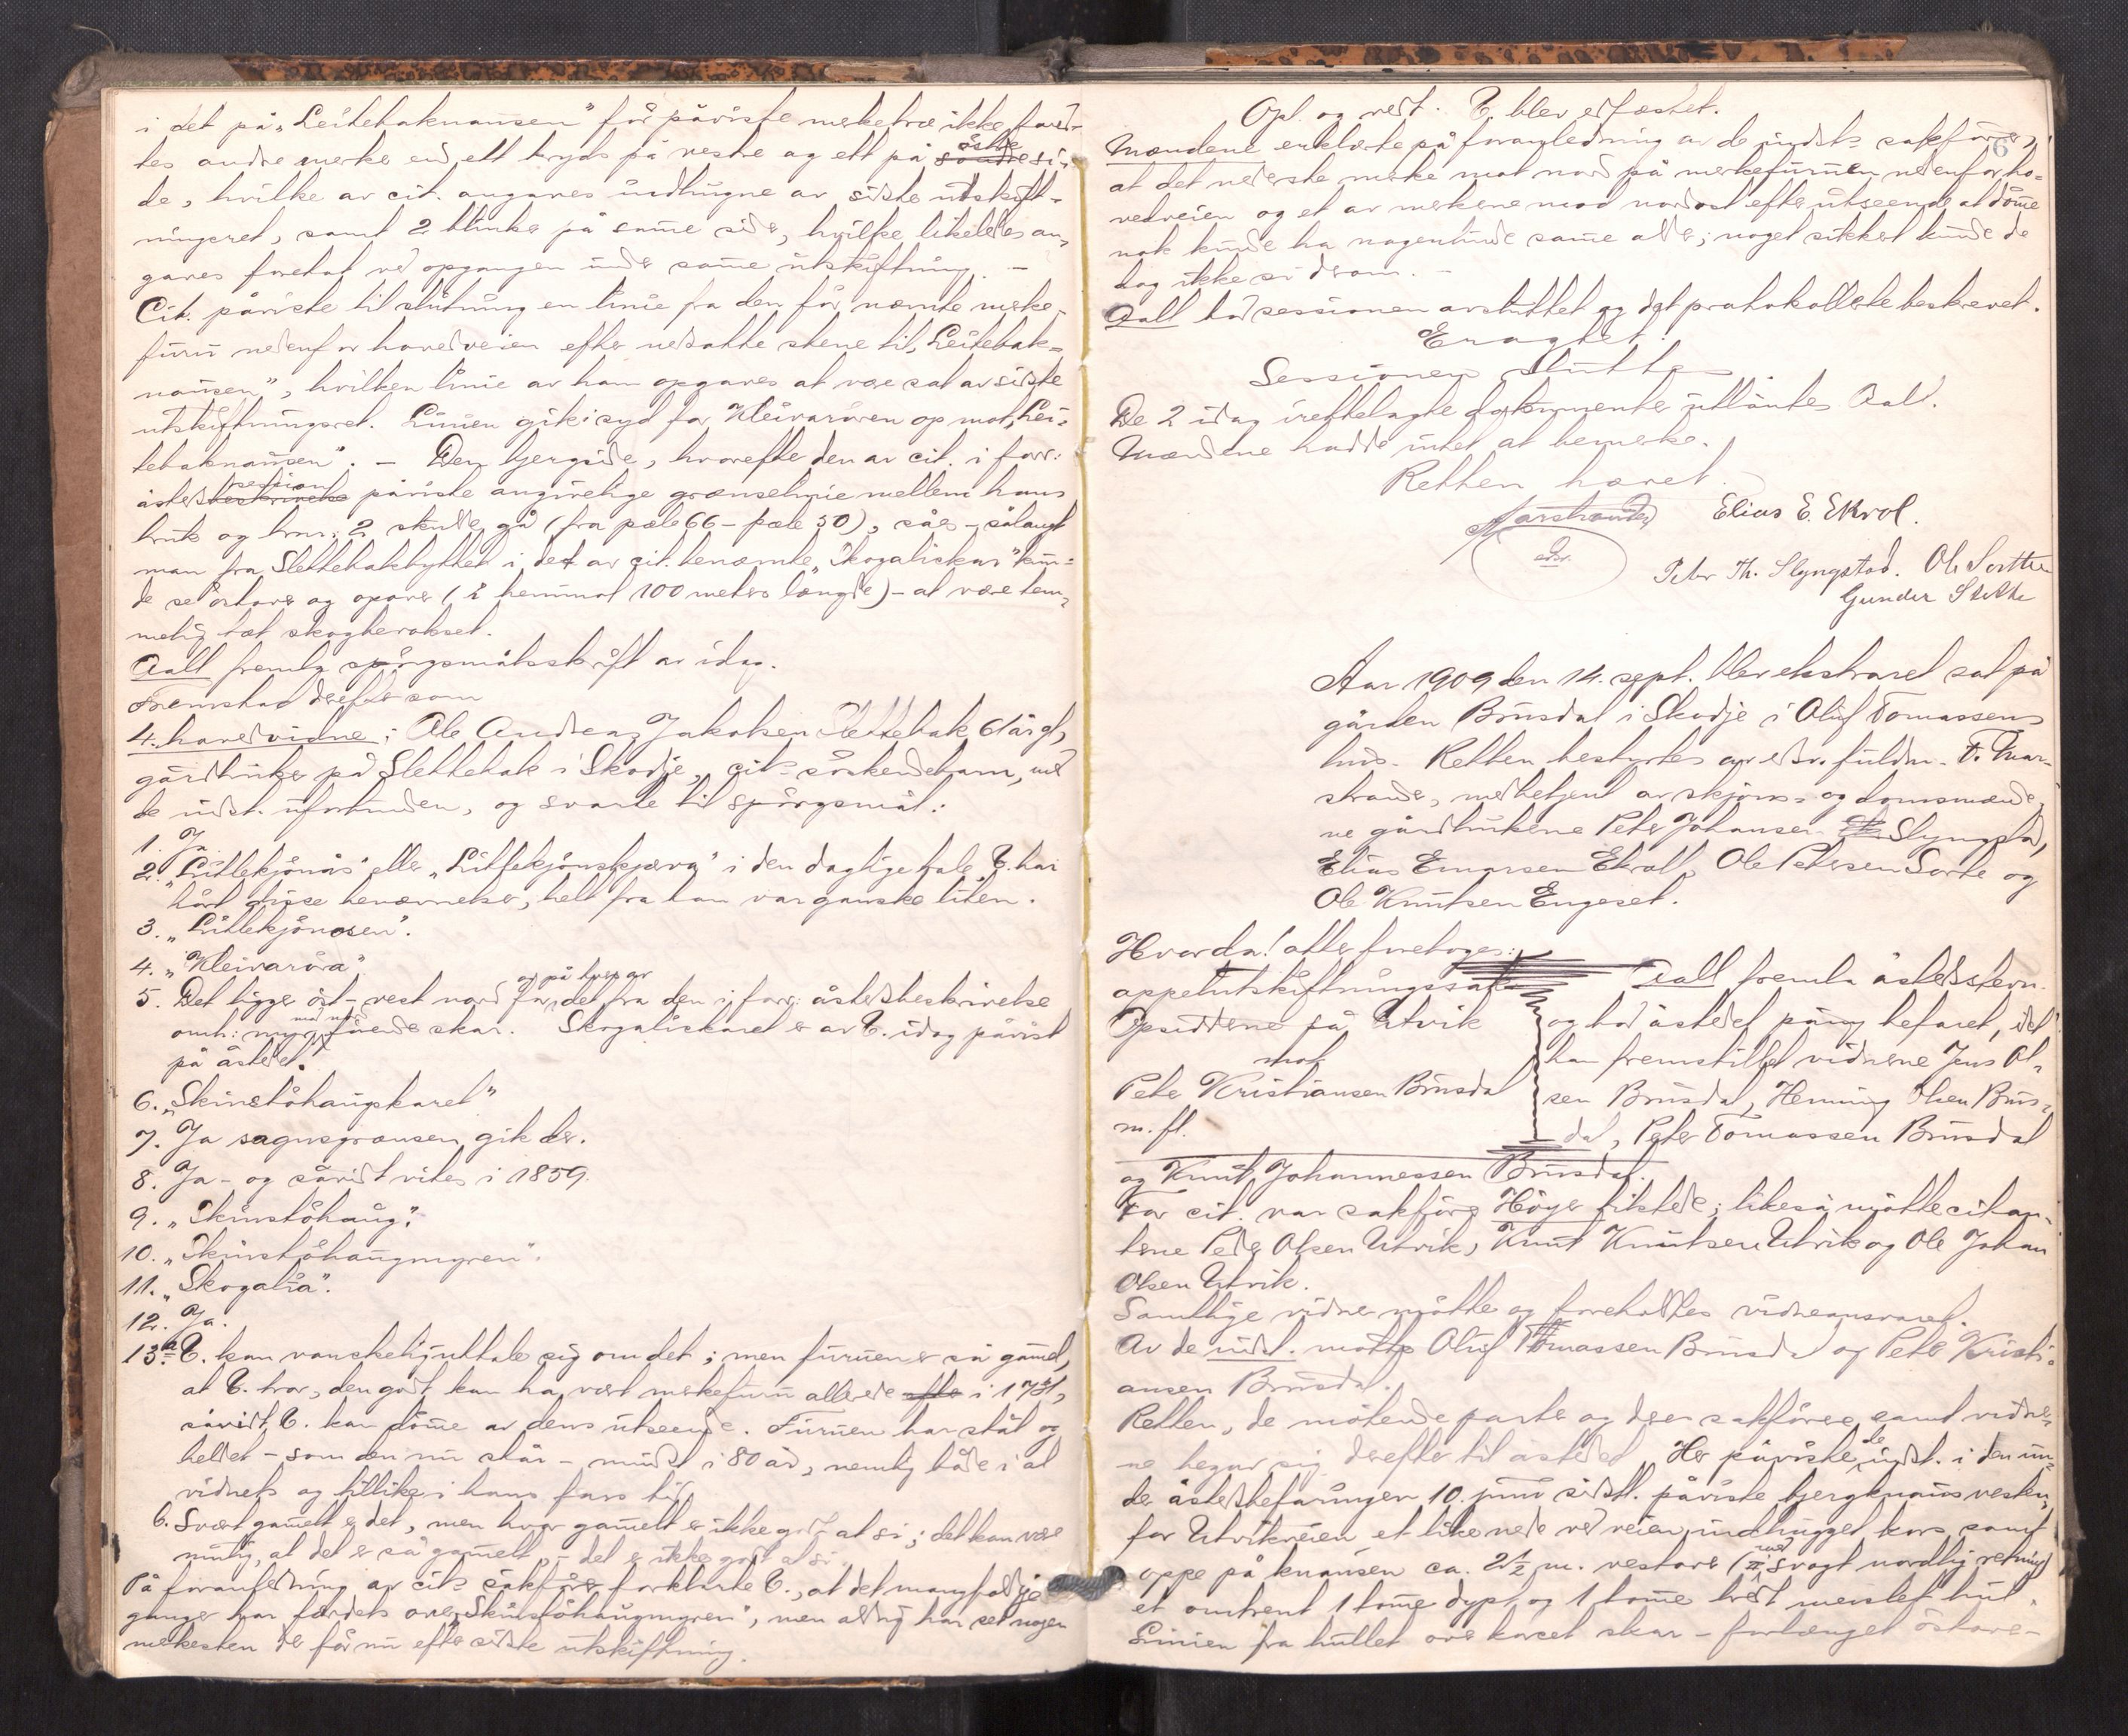 i det på „Leitebaknausen" før påviste merketræ ikke fand-
tes andre merke end ett kryds på vestre og ett på søndre østre si-
de, hvilke av cit. angaves indhugne av siste utskift-
ningsret, samt 2 blinker på samme side, hvilke likeledes an-
gaves foretat ved opgangen under samme utskiftning. -
Cit. påviste til slutning en linie fra den før nævnte merke-
furu nedenfor hovedveien efter nedsatte stene til „Leitebak-
nausen", hvilken linie av ham opgaves at være sat av siste
utskiftningsret. Linien gik i syd for Kleivarøren op mot „Lei-
tebaknausen". - Den bjergside, hvorefter den av cit. i forr:
åstedsbeskrivelse session påviste angivelige grænselinie mellem hans
bruk og brnr. 2 skulde gå (fra pæle 66 - pæle 50), såes - sålangt
man fra Slettebakbyttet i det av cit. benævnte „Skogaliskar" kun-
de se østover og opover (i henimot 100 meters længde) - at være tem-
melig tæt skogbevokset.
Aall fremla spørgsmålsskrift av idag.
Fremstod derefter som
4. hovedvidne: Ole Andreas Jakobsen Slettebak 61 år gl,
gårdbruker på Slettebak i Skodje, cits søskendebarn, med
de indst. ubeslægtet, og svarte til spørgsmål:
1. Ja.
2. „Litlekjønås" eller „Litlekjønskjærva" i den daglige tale. V. har
hørt disse benævnelser, helt fra han var ganske liten.
3. „Litlekjønosen".
4. „Kleivarøra"
5. Det ligger øst-vest nord for og på tvers av det fra den i forr: åstedsbeskrivelse
omh: myr mod nord gående skar. Skogaliskaret er av V. idag påvist
på åstedet.
6. „Skinstøhaugskaret"
7. Ja sagnsgrænsen gik der.
8. Ja - og såvidt vites i 1859.
9. „Skinstøhaug".
10. „Skinstøhaugmyren".
11. „Skogalia".
12. Ja.
13. a V. kan vanskelig uttale sig om det; men furuen er så gammel,
at V. tror, den godt kan ha vært merkefuru allerede efter i 17
såvidt V. kan dømme av dens utseende. Furuen har ståt og
heldet - som den nu står - mindst i 80 år, nemlig både i al
vidnets og tillike i hans fars tid.
b. Svært gammelt er det, men hvor gammelt er ikke godt at si; det kan være
mulig, at det er så gammelt, - det er ikke godt at si.
På foranledning av cits sakfører forklarte V., at det mangfoldige
ganger har færdets over „Skinstøhaugmyren", men aldrig har set nogen
merkesten der før nu efter siste utskiftning.
Opl. og vedt. V. blev edfæstet.
6
Mændene erklærte på foranledning av de indst:s sakfører,
at det nederste merke mot nord på merkefuruen nedenfor ho-
vedveien og et av merkene mod nordost efter utseende at dømme
nok kunde ha nogenlunde samme alder; noget sikkert kunde de
dog ikke si derom. -
Aall bad sessionen avsluttet og det protokollerte beskrevet.
Eragtet:
Sessionen sluttes.
De 2 idag irettelagte dokumenter utlåntes Aall.
Mændene hadde intet at bemerke.
Retten hævet.
Marstrander
edsv.
Elias E. Ekrol.
Peter Th. Slyngstad. Ole Sortte
Gunder Stette
Aar 1909 den 14. sept. blev ekstraret sat på
gården Brusdal i Skodje i Oluf Tomassens
hus. Retten bestyrtes av edsv. fuldm. F. Mar-
strander, medbetjent av skjøns- og domsmænde-
ne gårdbrukerne Peter Johansen Slyngstad,
Elias Emarsen Ekroll, Ole Petersen Sorte og
Ole Knutsen Engeset.
Hvorda! atter foretoges:
appelutskiftningssak
Opsidderne på Utvik
mot
Peter Kristiansen Brusdal
m. fl.
Aall fremla åstedsstevn.
og bad åstedet påny befaret, idet
han fremstillet vidnerne Jens Ol-
sen Brusdal, Henning Olsen Brus-
dal, Peter Tomassen Brusdal
og Knut Johannessen Brusdal.
For cit. var sakfører Höyer tilstede; likeså møtte citan-
tene Peder Olsen Utvik, Knut Knutsen Utvik og Ole Johan
Olsen Utvik.
Samtlige vidner møtte og foreholdtes vidneansvaret.
Av de indst. møtte Oluf Tomassen Brusdal og Peter Kristi-
ansen Brusdal.
Retten, de møtende parter og deres sakførere samt vidner-
ne begav sig derefter til åstedet. Her påviste de indst. i den un-
der åstedsbefaringen 10. juni sistl. påviste bjergknaus vesten-
for Utvikveien et like nede ved veien indhugget kors samt
oppe på knausen ca. 2½ m. vestover (i med svagt nordlig retning)
et omtrent 1 tomme dypt og 1 tomme bredt meislet hul.
Linien fra hullet over korset skar - forlænget østover -